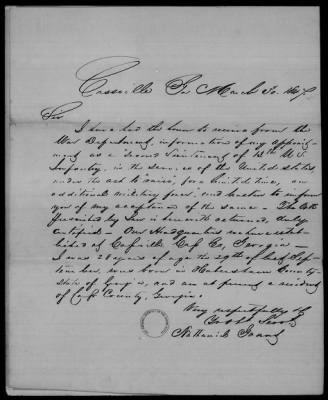 Cassville Ga March 30. 1847.
Sir
I have had the honor to receive from the
War Department, information of my appoint-
ment as a second Lieutenant of 13th U.S.
Infantry, in the service of the United States,
under the act to raise, for a limited time, an
additional military force, and hasten to inform
you of my acceptance of the same - The Oath
prescribed by law is herewith returned, duly
certified - Our Headquarters
at Cassville Cass Co, Georgia -
I was 28 years of age the 29th of last Sep-
tember, was born in Habersham County
State of Georgia, and am at present a resident
of Cass County, Georgia.
Very respectfully Sir
Your Obt Servt
Nathaniel